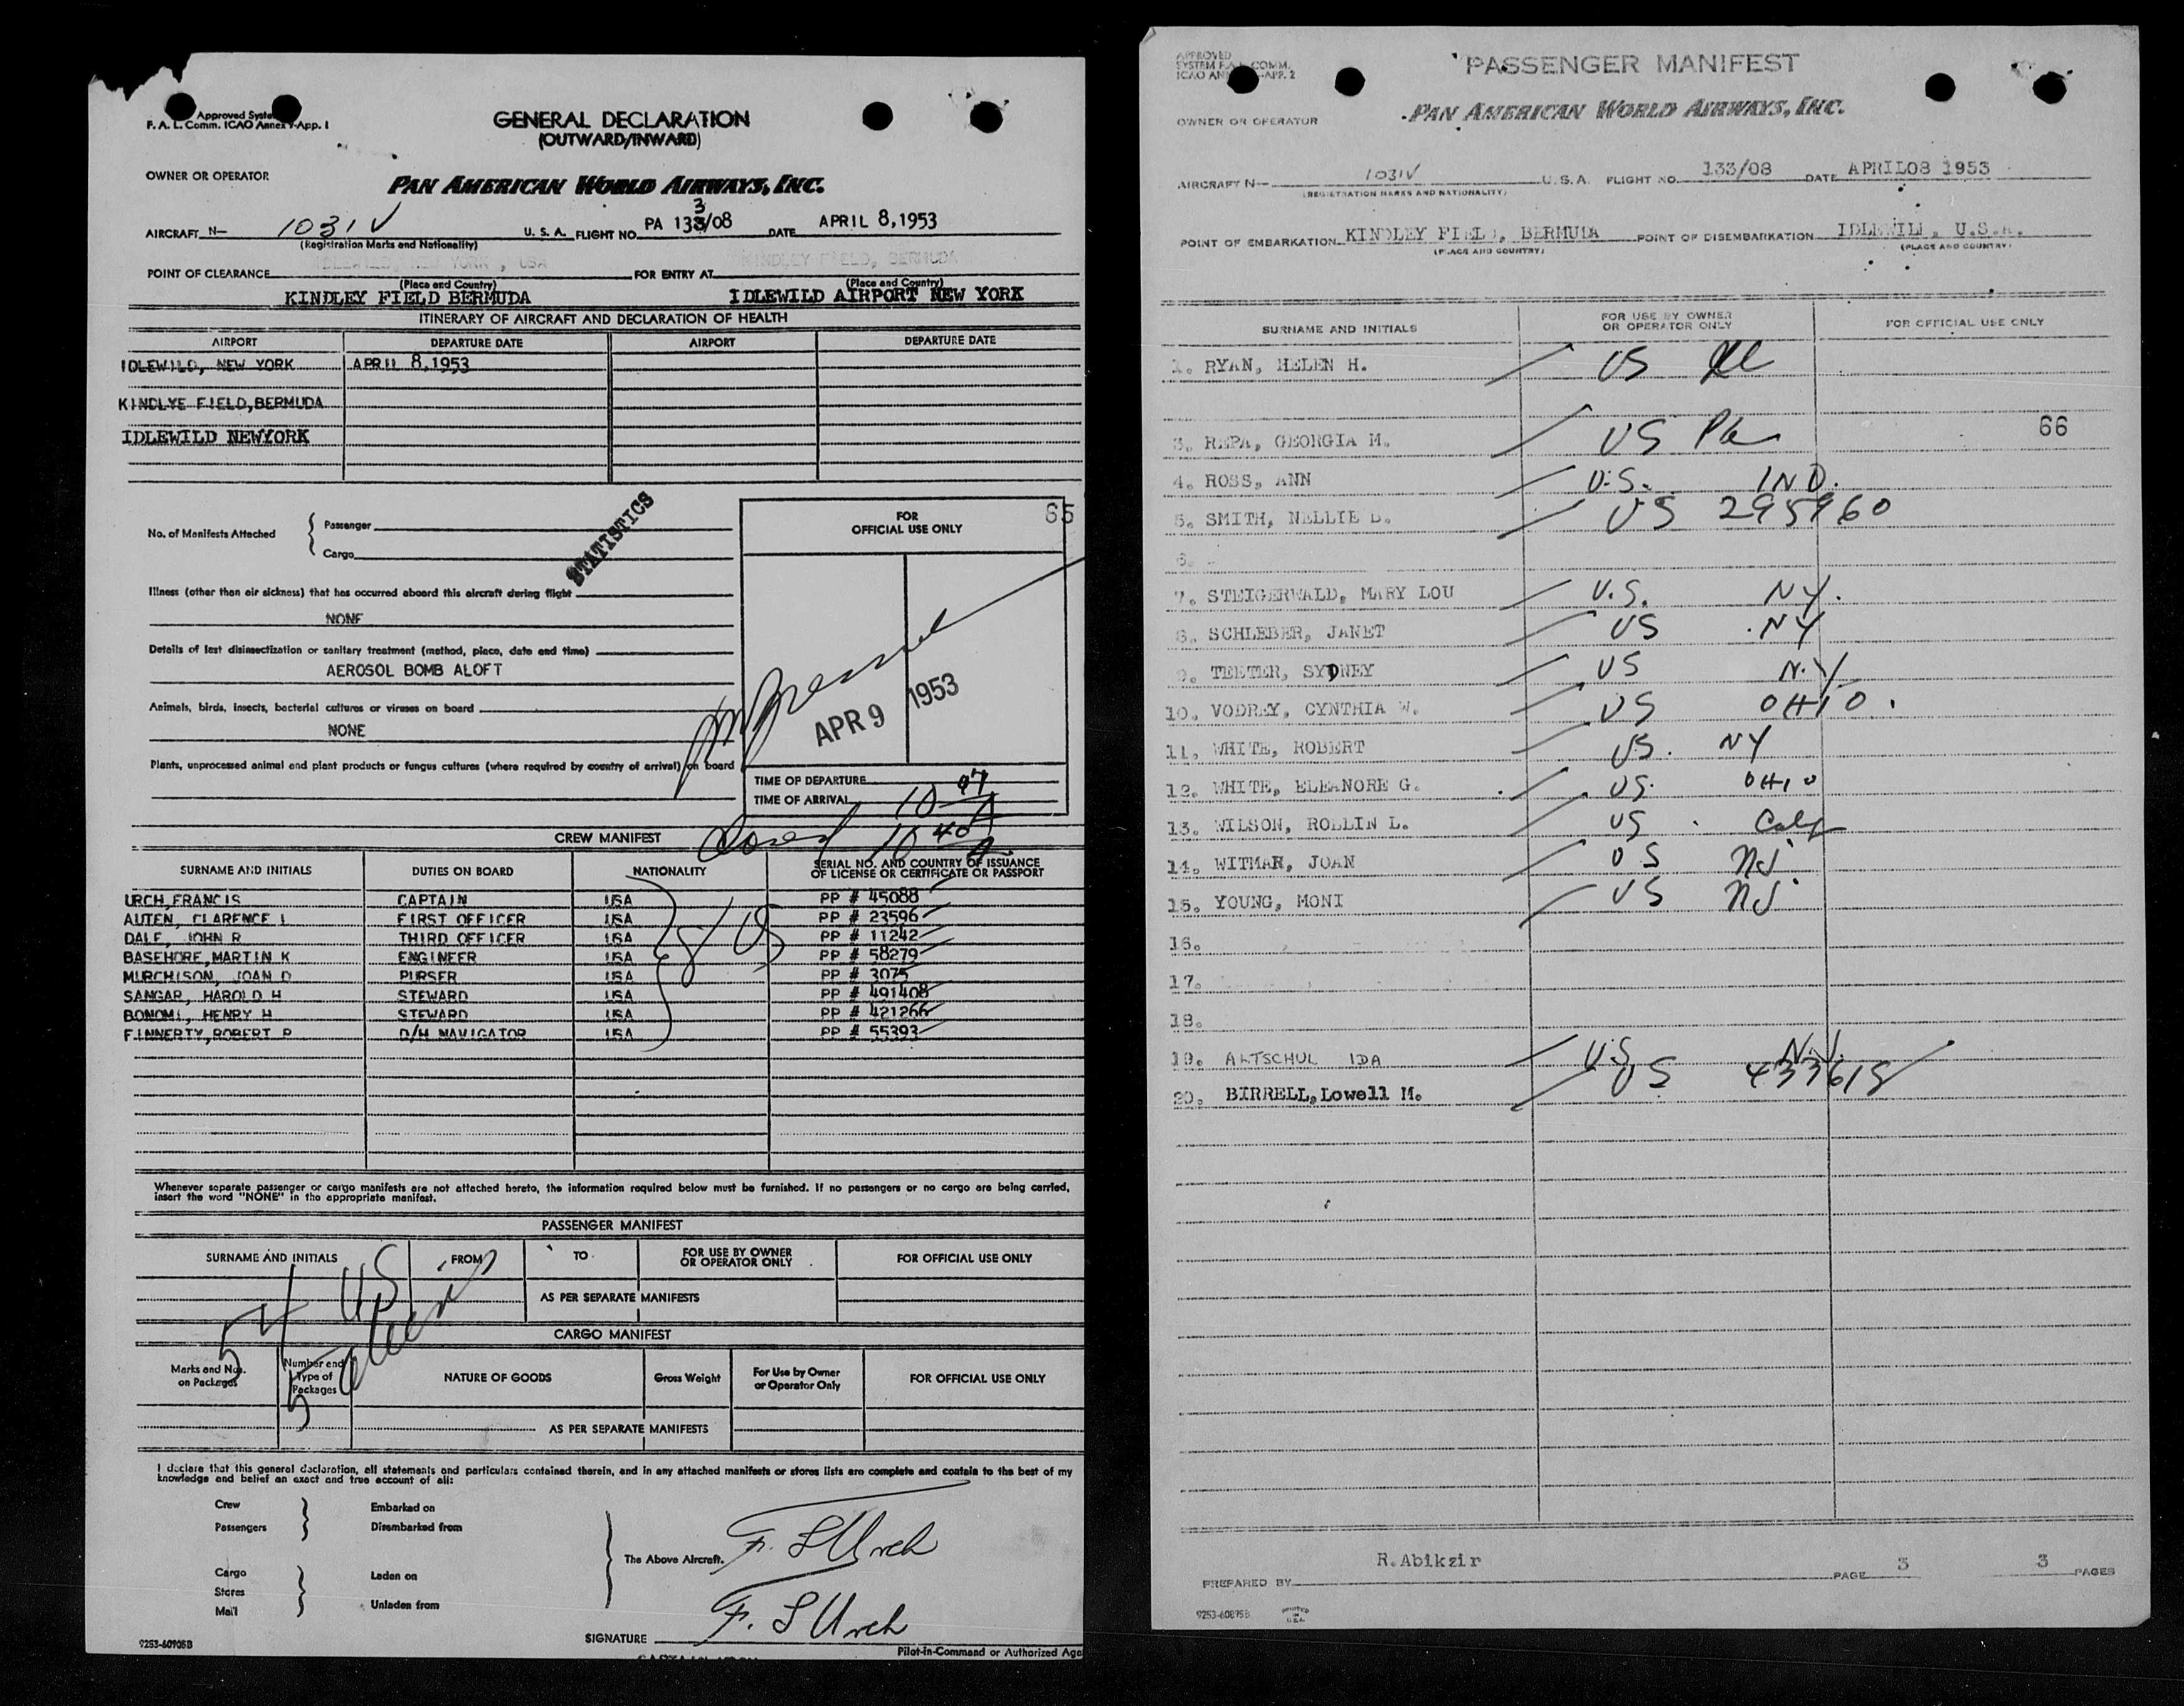 Approved System
F. A. L. Comm. ICAO Annex 9-App. I
GENERAL DECLARATION
(OUTWARD/INWARD)
OWNER OR OPERATOR
PAN AMERICAN WORLD AIRWAYS, INC.
AIRCRAFT N— 1031V U. S. A. FLIGHT NO. PA 133/08 DATE APRIL 8,1953
3
(Registration Marks and Nationality)
POINT OF CLEARANCE IDLEWILD, NEW YORK , USA FOR ENTRY AT KINDLEY FIELD, BERMUDA
(Place and Country) (Place and Country)
KINDLEY FIELD BERMUDA IDLEWILD AIRPORT NEW YORK
ITINERARY OF AIRCRAFT AND DECLARATION OF HEALTH
AIRPORT DEPARTURE DATE AIRPORT DEPARTURE DATE
IDLEWILD, NEW YORK APRIL 8,1953
KINDLYE FIELD,BERMUDA
IDLEWILD NEWYORK
No. of Manifests Attached
Passenger
Cargo
STATISTICS
FOR
OFFICIAL USE ONLY
65
Illness (other than air sickness) that has occurred aboard this aircraft during flight
NONE
Details of last disinsectization or sanitary treatment (method, place, date and time)
AEROSOL BOMB ALOFT
Animals, birds, insects, bacterial cultures or viruses on board
NONE
APR 9 1953
Plants, unprocessed animal and plant products or fungus cultures (where required by country of arrival) on board
TIME OF DEPARTURE
TIME OF ARRIVAL 10 07 A
10 40 A
CREW MANIFEST
SURNAME AND INITIALS DUTIES ON BOARD NATIONALITY SERIAL NO. AND COUNTRY OF ISSUANCE
OF LICENSE OR CERTIFICATE OR PASSPORT
URCH,FRANCIS CAPTAIN USA PP # 45088
AUTEN, CLARENCE L FIRST OFFICER USA PP # 23596
DALE, JOHN R THIRD OFFICER USA PP # 11242
BASEHORE,MARTIN K ENGINEER USA PP # 58279
MURCHISON, JOAN D PURSER USA PP # 3075
SANGAR, HAROLD H STEWARD USA PP # 491408
BONOMI, HENRY H STEWARD USA PP # 421266
FINNERTY,ROBERT P D/H NAVIGATOR USA PP # 55393
8/ US
Whenever separate passenger or cargo manifests are not attached hereto, the information required below must be furnished. If no passengers or no cargo are being carried,
insert the word "NONE" in the appropriate manifest.
PASSENGER MANIFEST
SURNAME AND INITIALS FROM TO FOR USE BY OWNER
OR OPERATOR ONLY FOR OFFICIAL USE ONLY
AS PER SEPARATE MANIFESTS
US
alien
CARGO MANIFEST
Marks and Nos.
on Packages
Number and
Type of
Packages
NATURE OF GOODS Gross Weight For Use by Owner
or Operator Only FOR OFFICIAL USE ONLY
AS PER SEPARATE MANIFESTS
I declare that this general declaration, all statements and particulars contained therein, and in any attached manifests or stores lists are complete and contain to the best of my
knowledge and belief an exact and true account of all:
Crew
Passengers
Embarked on
Disembarked from
Cargo
Stores
Mail
Laden on
Unladen from
The Above Aircraft. F. S Urch
SIGNATURE F. S Urch
Pilot-in-Command or Authorized Age
9253-60905B
APPROVED
SYSTEM F.A.L. COMM.
ICAO ANNEX 9-APP. 2
PASSENGER MANIFEST
PAN AMERICAN WORLD AIRWAYS, INC.
OWNER OR OPERATOR
AIRCRAFT N— 1031V U.S.A. FLIGHT NO. 133/08 DATE APRIL08 1953
(REGISTRATION MARKS AND NATIONALITY)
POINT OF EMBARKATION KINDLEY FIELD, BERMUDA POINT OF DISEMBARKATION IDLEWILD, U.S.A.
(PLACE AND COUNTRY) (PLACE AND COUNTRY)
SURNAME AND INITIALS FOR USE BY OWNER
OR OPERATOR ONLY FOR OFFICIAL USE ONLY
1. RYAN, HELEN H. US
66
3. REPA, GEORGIA M. US Pa
4. ROSS, ANN U.S. IND.
5. SMITH, NELLIE B. US 295960
6.
7. STEIGERWALD, MARY LOU U.S. NY.
8. SCHLEBER, JANET US NY
9. TEETER, SYDNEY US N.Y.
10. VODREY, CYNTHIA W. US OHIO.
11. WHITE, ROBERT US. NY
12. WHITE, ELEANORE G. US. OHIO
13. WILSON, ROLLIN L. US Calif
14. WITMAR, JOAN US NJ
15. YOUNG, MONI US NJ
16.
17.
18.
19. ALTSCHUL IDA U.S N.J.
20. BIRRELL,Lowell M. US 433618
PREPARED BY R.Abikzir PAGE 3 3 PAGES
9253-60895B PRINTED
IN
U.S.A.